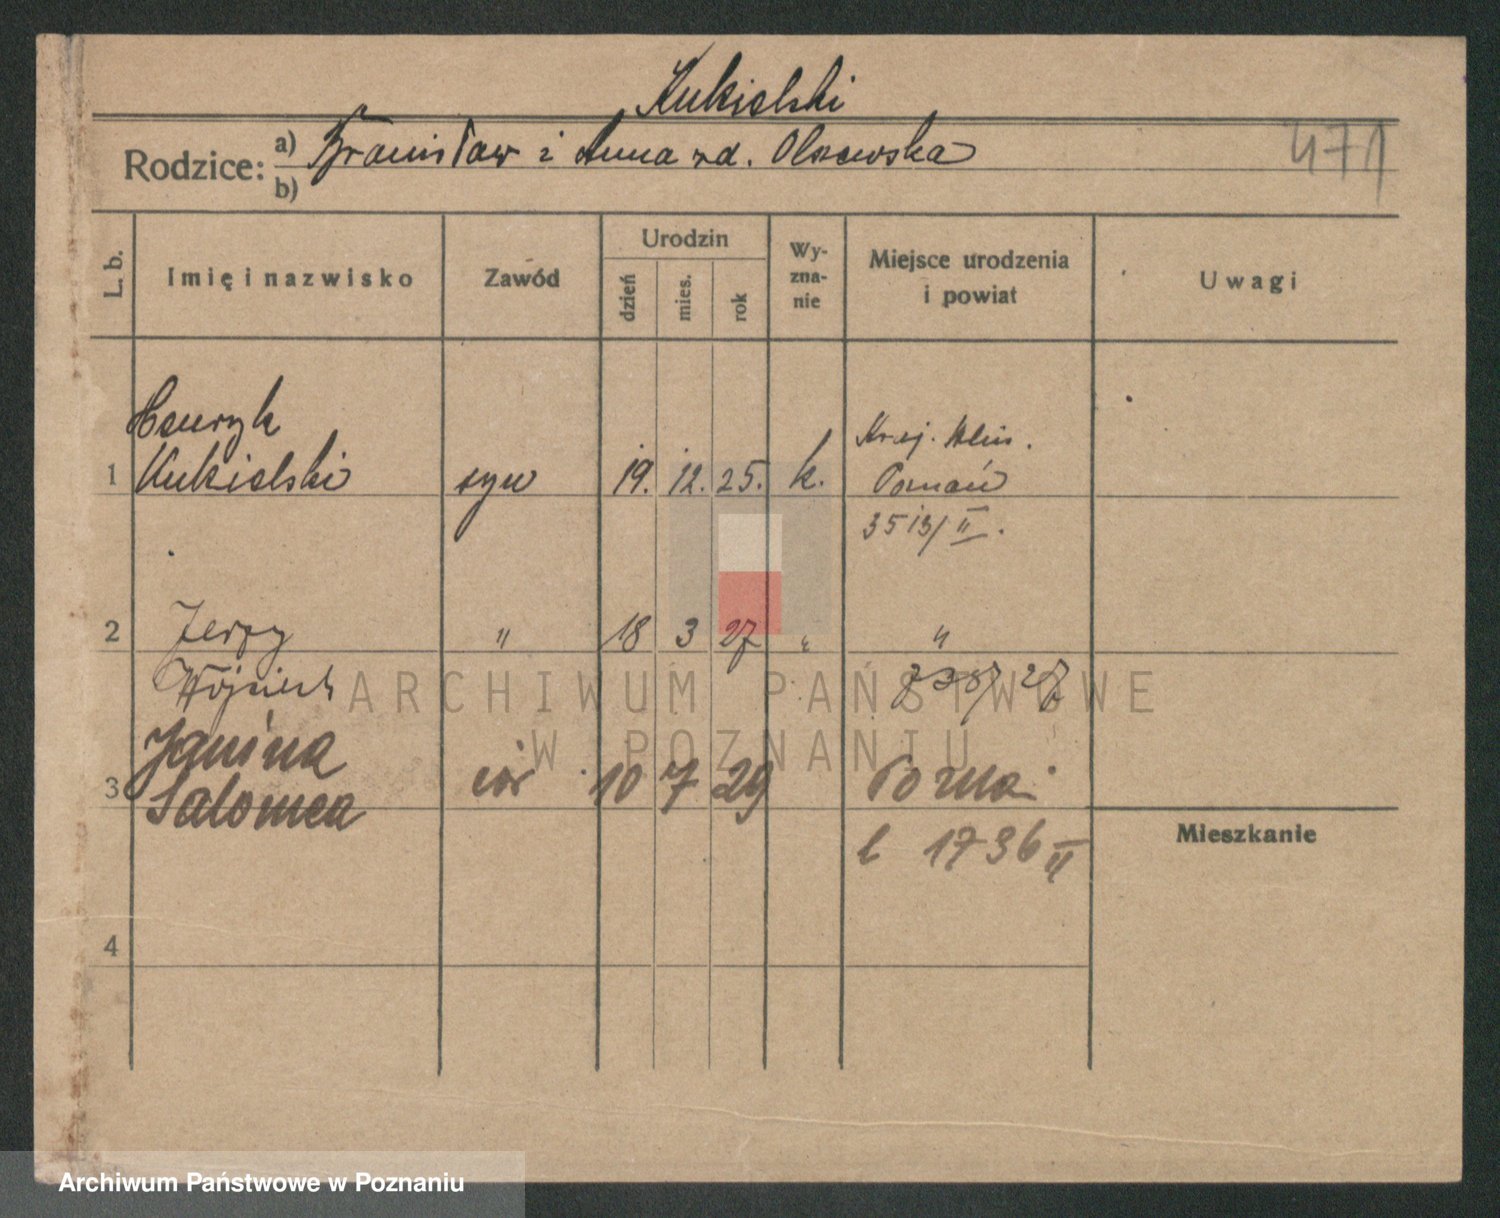 Kukielski
Rodzice: a) Bronisław i Anna zd. Olszewska
b)
471
L. b.
Imię i nazwisko
Zawód
Urodzin
dzień
mies.
rok
Wy-
zna-
nie
Miejsce urodzenia
i powiat
Uwagi
Henryk
1 Kukielski syn 19. 12. 25. k. Poznań
3513/II.
2 Jerzy " 18 3 27 " "
Wojciech
Janina
3 Salomea cór 10 7 29 Pozna
l 1736 II
Mieszkanie
4
ARCHIWUM PAŃSTWOWE
W POZNANIU
Archiwum Państwowe w Poznaniu